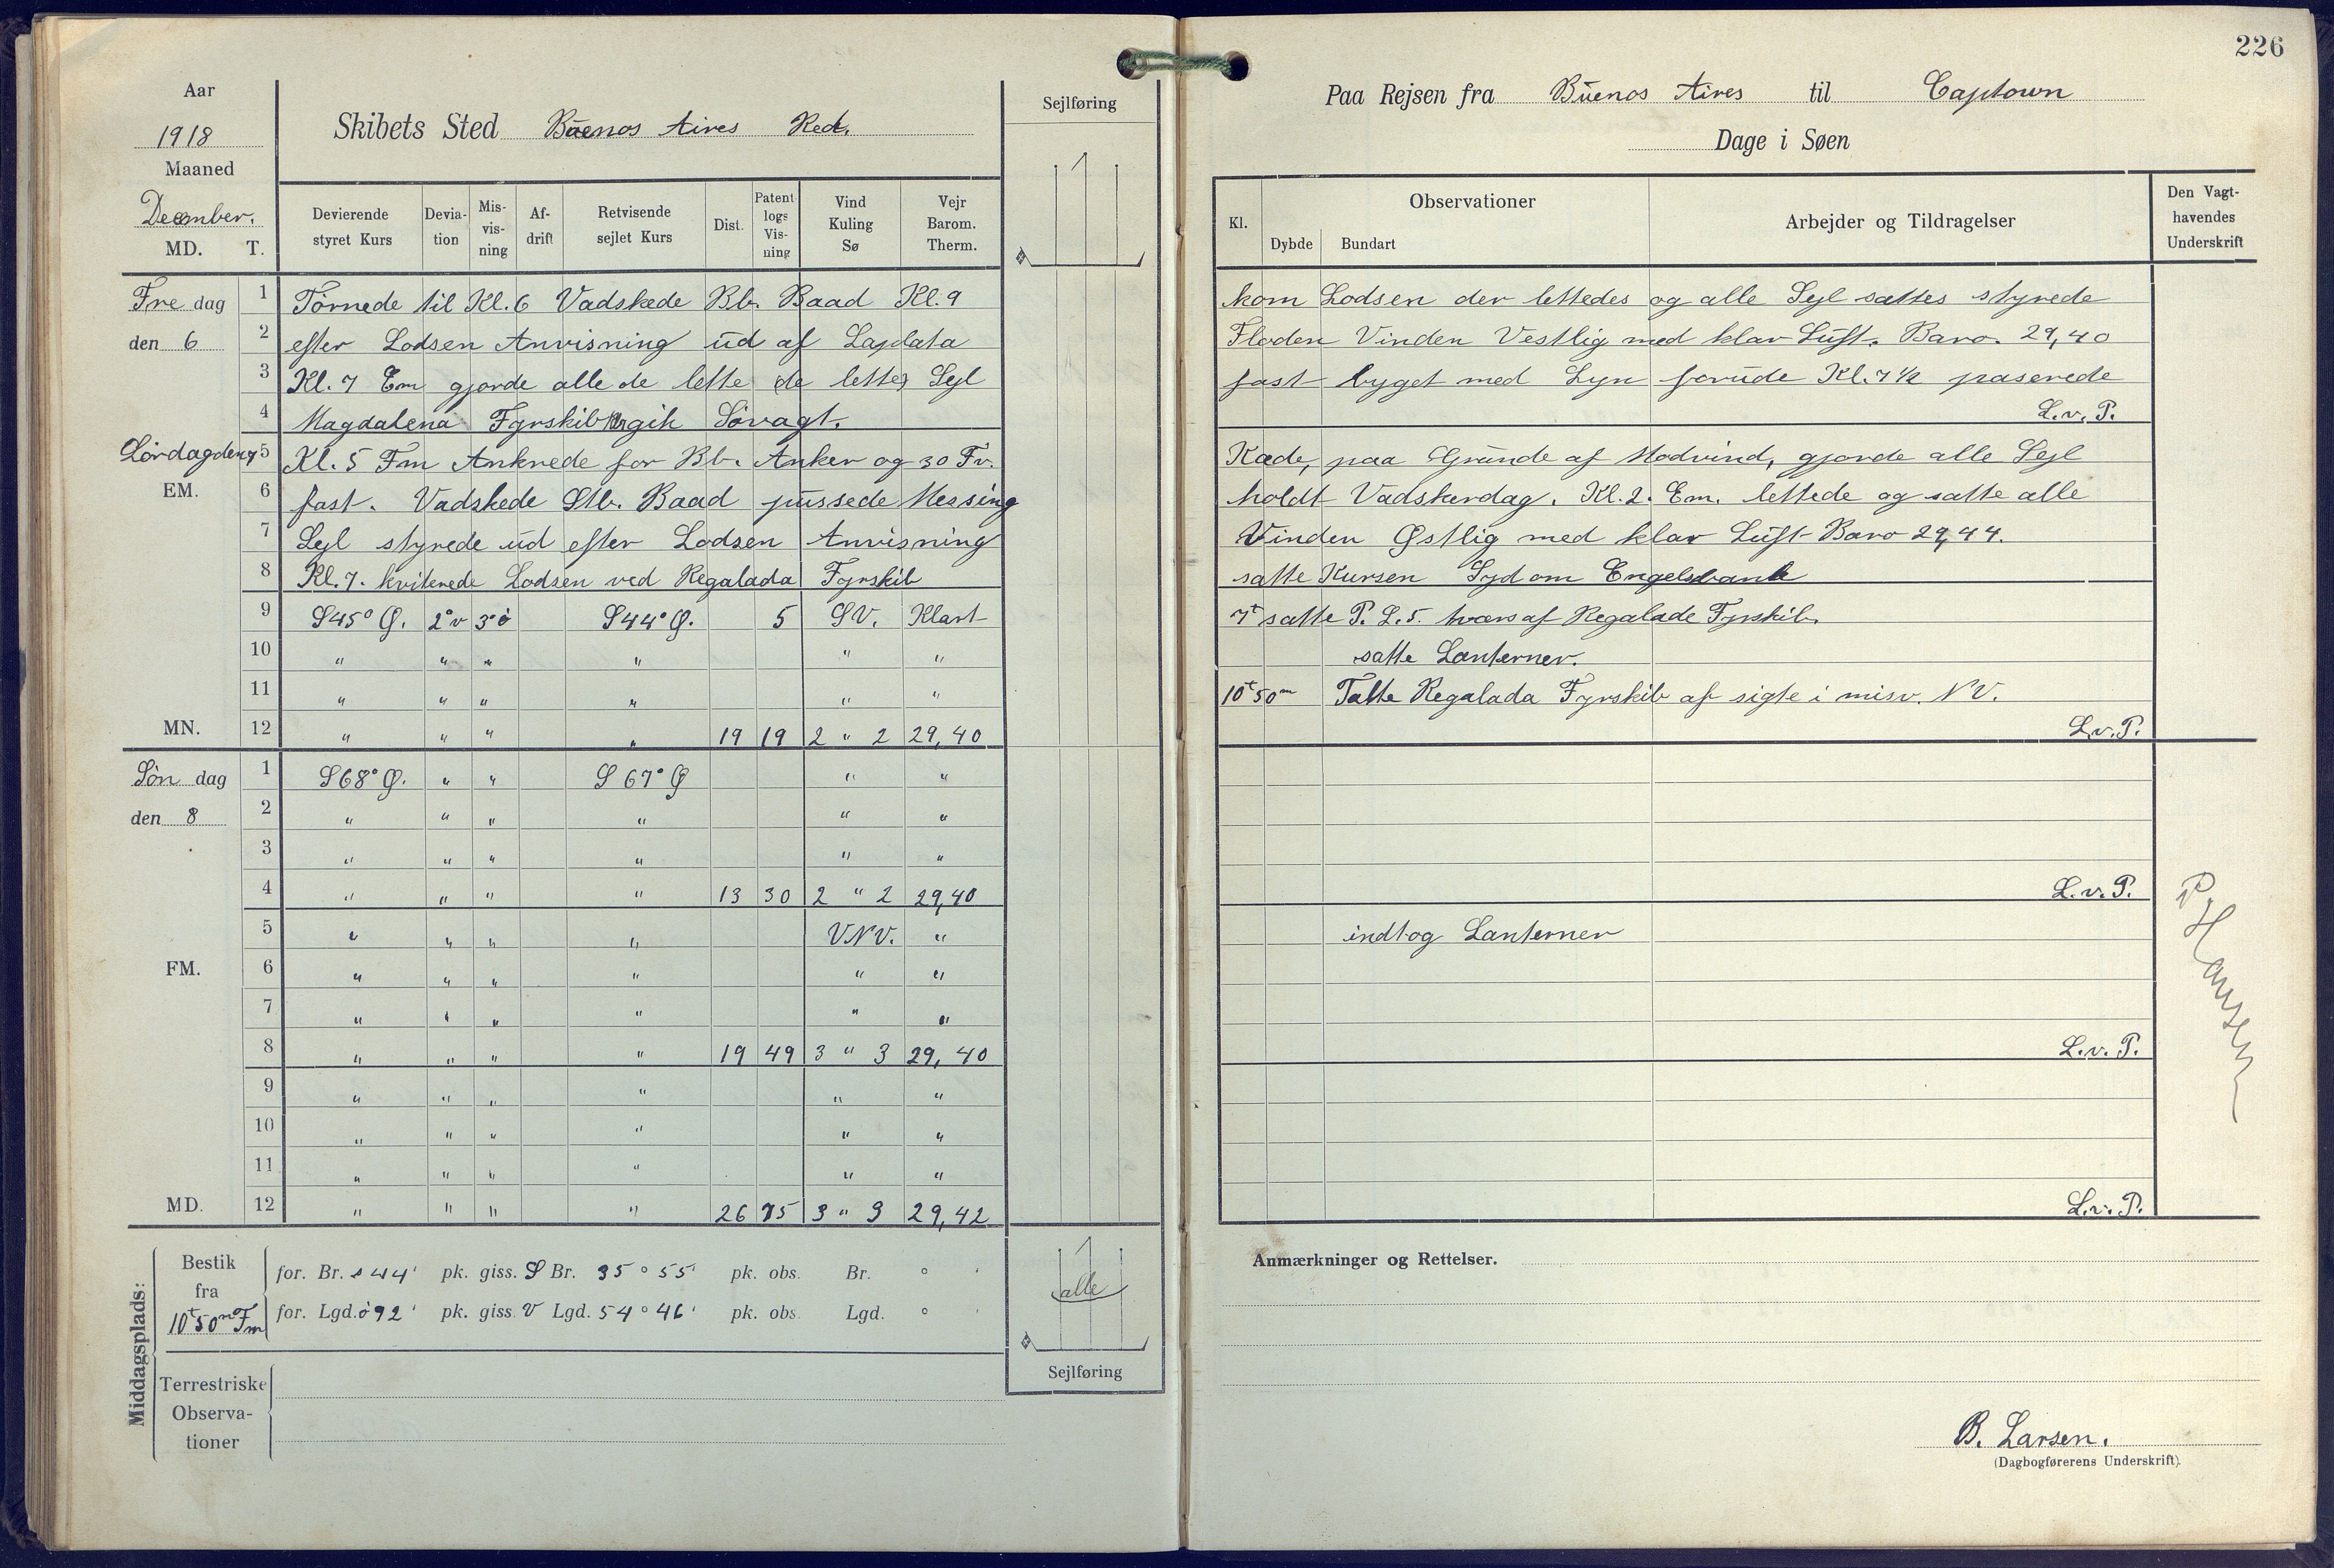 226
Aar
1918
Maaned
December.
MD. T.
Skibets Sted Buenos Aires Red.
Sejlføring
Paa Rejsen fra Buenos Aires til Captown
Dage i Søen
Devierende styret Kurs
Devia-tion
Mis-vis-ning
Af-drift
Retvisende sejlet Kurs
Dist.
Patent logs Vis-ning
Vind Kuling Sø
Vejr Barom. Therm.
Kl.
Observationer
Dybde Bundart
Arbejder og Tildragelser
Den Vagt-havendes Underskrift
Fre dag 1 Törnede til Kl. 6 Vadskede Bb. Baad Kl. 9 kom Lodsen der lettedes og alle Sejl sattes styrede
den 6 2 efter Lodsen Anvisning ud af Laplata Floden Vinden Vestlig med klar Luft. Baro. 29,40
3 Kl. 7 Em gjorde alle de lette (de lette) Sejl fast byget med Lyn forude Kl. 7 ½ paserede
4 Magdalena Fyrskib gik Sövagt. L.v.P.
Lördag den 7 5 Kl. 5 Fm Ankrede for Bb. Anker og 30 Fv. Kæde, paa Grunde af Modvind, gjorde alle Sejl
EM. 6 fast. Vadskede Stb. Baad pussede Messing holdt Vadskerdag. Kl. 2. Em. lettede og satte alle
7 Sejl styrede ud efter Lodsen Anvisning Vinden Østlig med klar Luft Baro 29,44.
8 Kl. 7. kviterede Lodsen ved Regalada Fyrskib satte Kursen Syd om Engelsbank
9 S45° Ø. 2°v 3°ö S44° Ø. 5 SV. Klart 7t satte P. L. 5. tværs af Regalade Fyrskib.
10 " " " " " " satte Lanterner.
11 " " " " " " 10t50m Tabte Regalada Fyrskib af sigte i misv. NV.
MN. 12 " " " " 19 19 2 " 2 29,40 L.v.P.
Sön dag 1 S68° Ø. " " S 67° Ø " "
den 8 2 " " " " " "
3 " " " " " "
4 " " " " 13 30 2 " 2 29,40 L.v.P.
5 " " " " VNV. " indtog Lanterner
FM. 6 " " " " " "
7 " " " " " "
8 " " " " 19 49 3 " 3 29,40 L.v.P.
9 " " " " " "
10 " " " " " "
11 " " " " " "
MD. 12 " " " " 26 75 3 " 3 29,42 L.v.P.
P. Hansen
Middagsplads:
Bestik fra 10t50m Fm
for. Br. s 44' pk. giss. S Br. 35° 55' pk. obs. Br. ° '
for. Lgd. ö 92' pk. giss. V Lgd. 54° 46' pk. obs. Lgd. ° '
alle
Sejlføring
Terrestriske Observa-tioner
Anmærkninger og Rettelser.
B. Larsen.
(Dagbogførerens Underskrift).